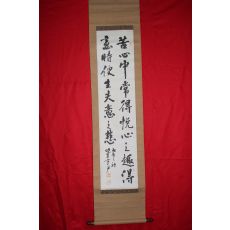 苦心中常得悦心之趣得
意時便生失意之悲